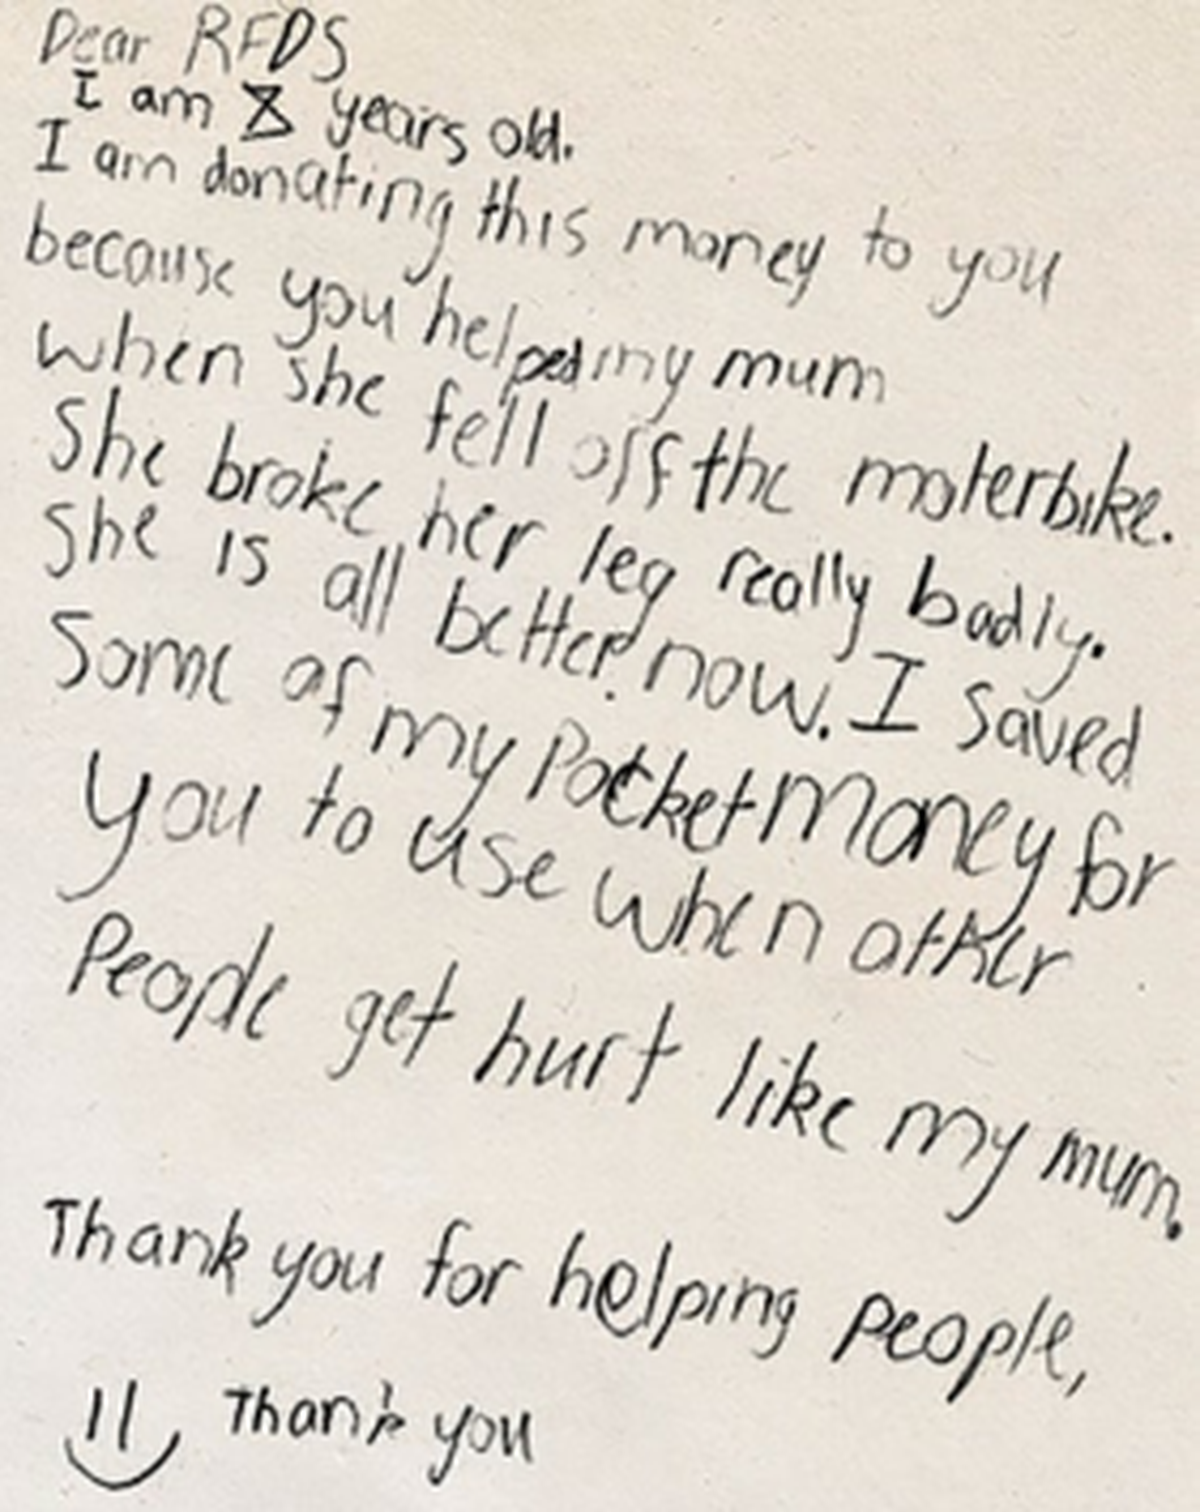 Dear RFDS
I am 8 years old.
I am donating this money to you
because you helped my mum
when she fell off the moterbike.
She broke her leg really badly.
She is all better now. I saved
Some of my Pocket Money for
you to use when other
People get hurt like my mum.
Thank you for helping people,
Thank you